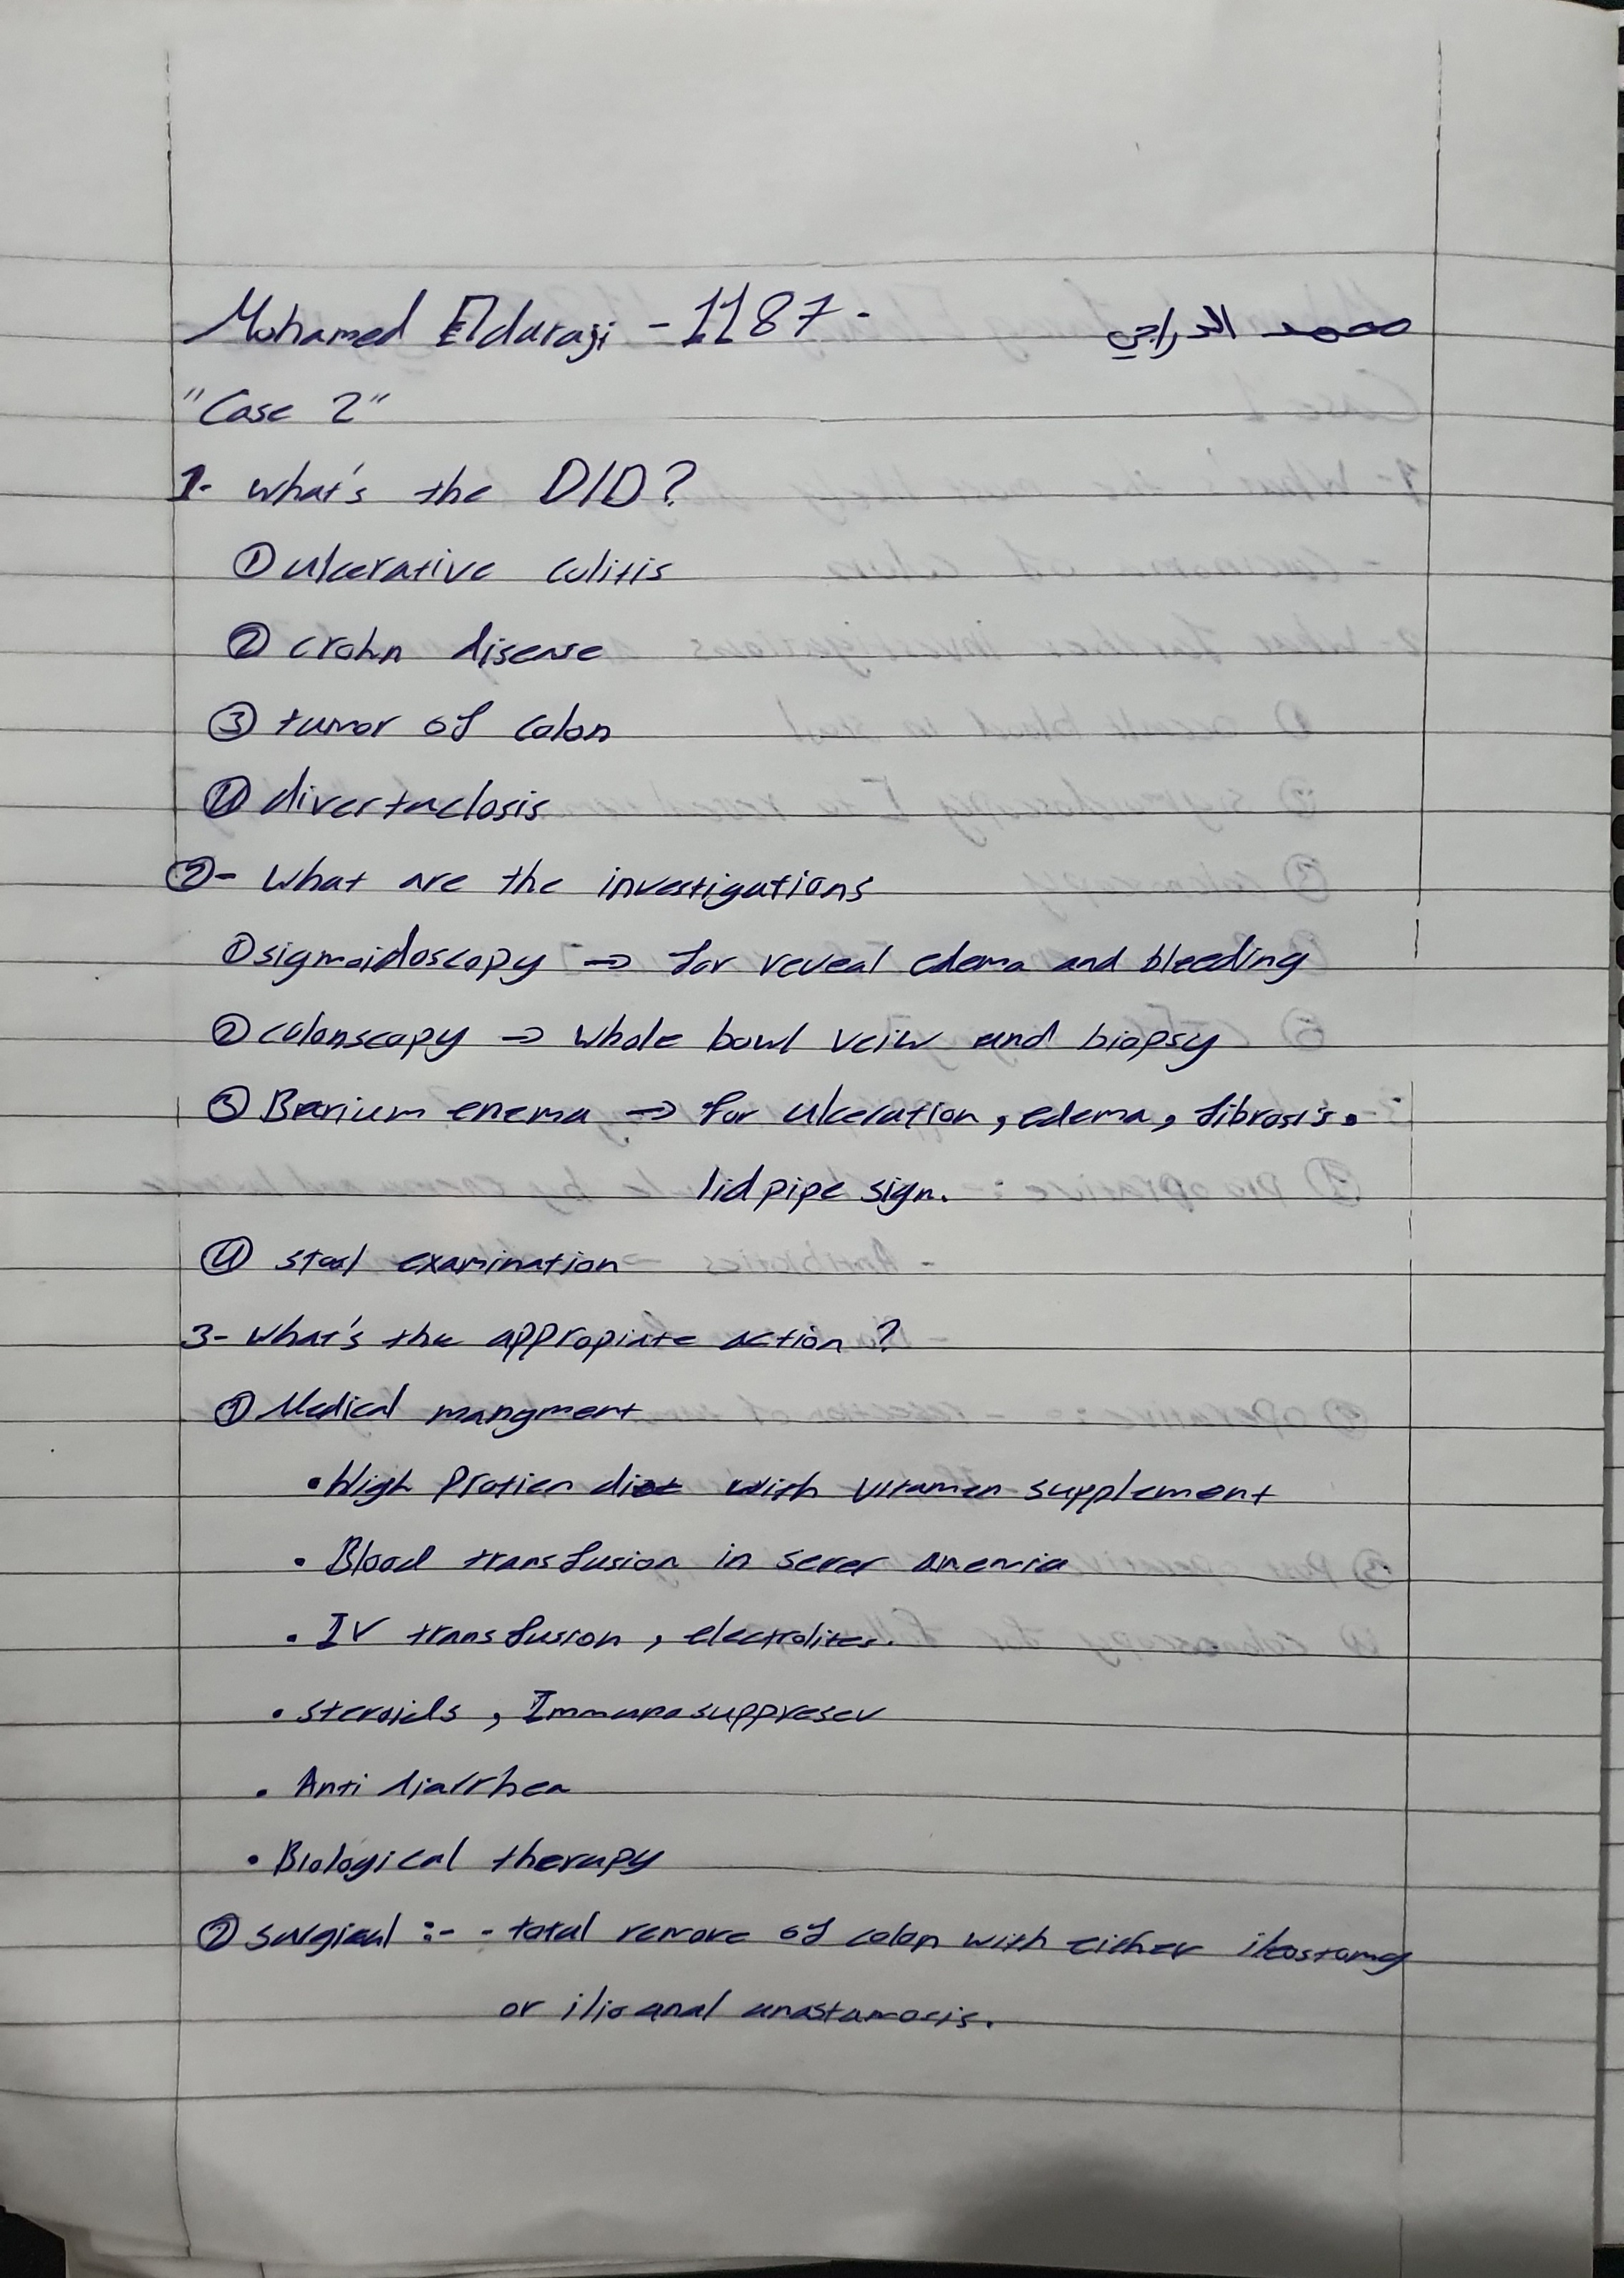 Mohamed Eldaragi - 1187 - محمد الدراجي
"Case 2"
1- what's the D/D?
① ulcerative colitis
② crohn disease
③ tumor of colon
④ divertaclosis
②- What are the investigations
① sigmoidoscopy → for reveal edema and bleeding
② colonscapy → whole bowl veiw and biopsy
③ Barium enema → for ulceration, edema, fibrosis.
lid pipe sign.
④ stool examination
3- what's the appropiate action?
① Medical mangment
• High protien diet with vitamen supplement
• Blood transfusion in sever anemia
• IV transfusion, electrolites.
• steroids, Immunosuppreser
• Anti diarrhea
• Biological therapy
② surgical :- - total remove of colon with either ileostomy
or ilioanal anastamosis.